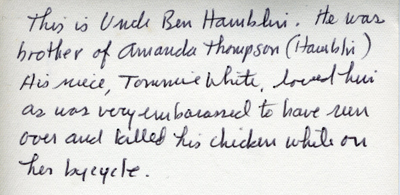 This is Uncle Ben Hamblin. He was
brother of Amanda Thompson (Hamblin)
His niece, Tommie White, loved him
as was very embarassed to have run
over and killed his chicken while on
her bycycle.